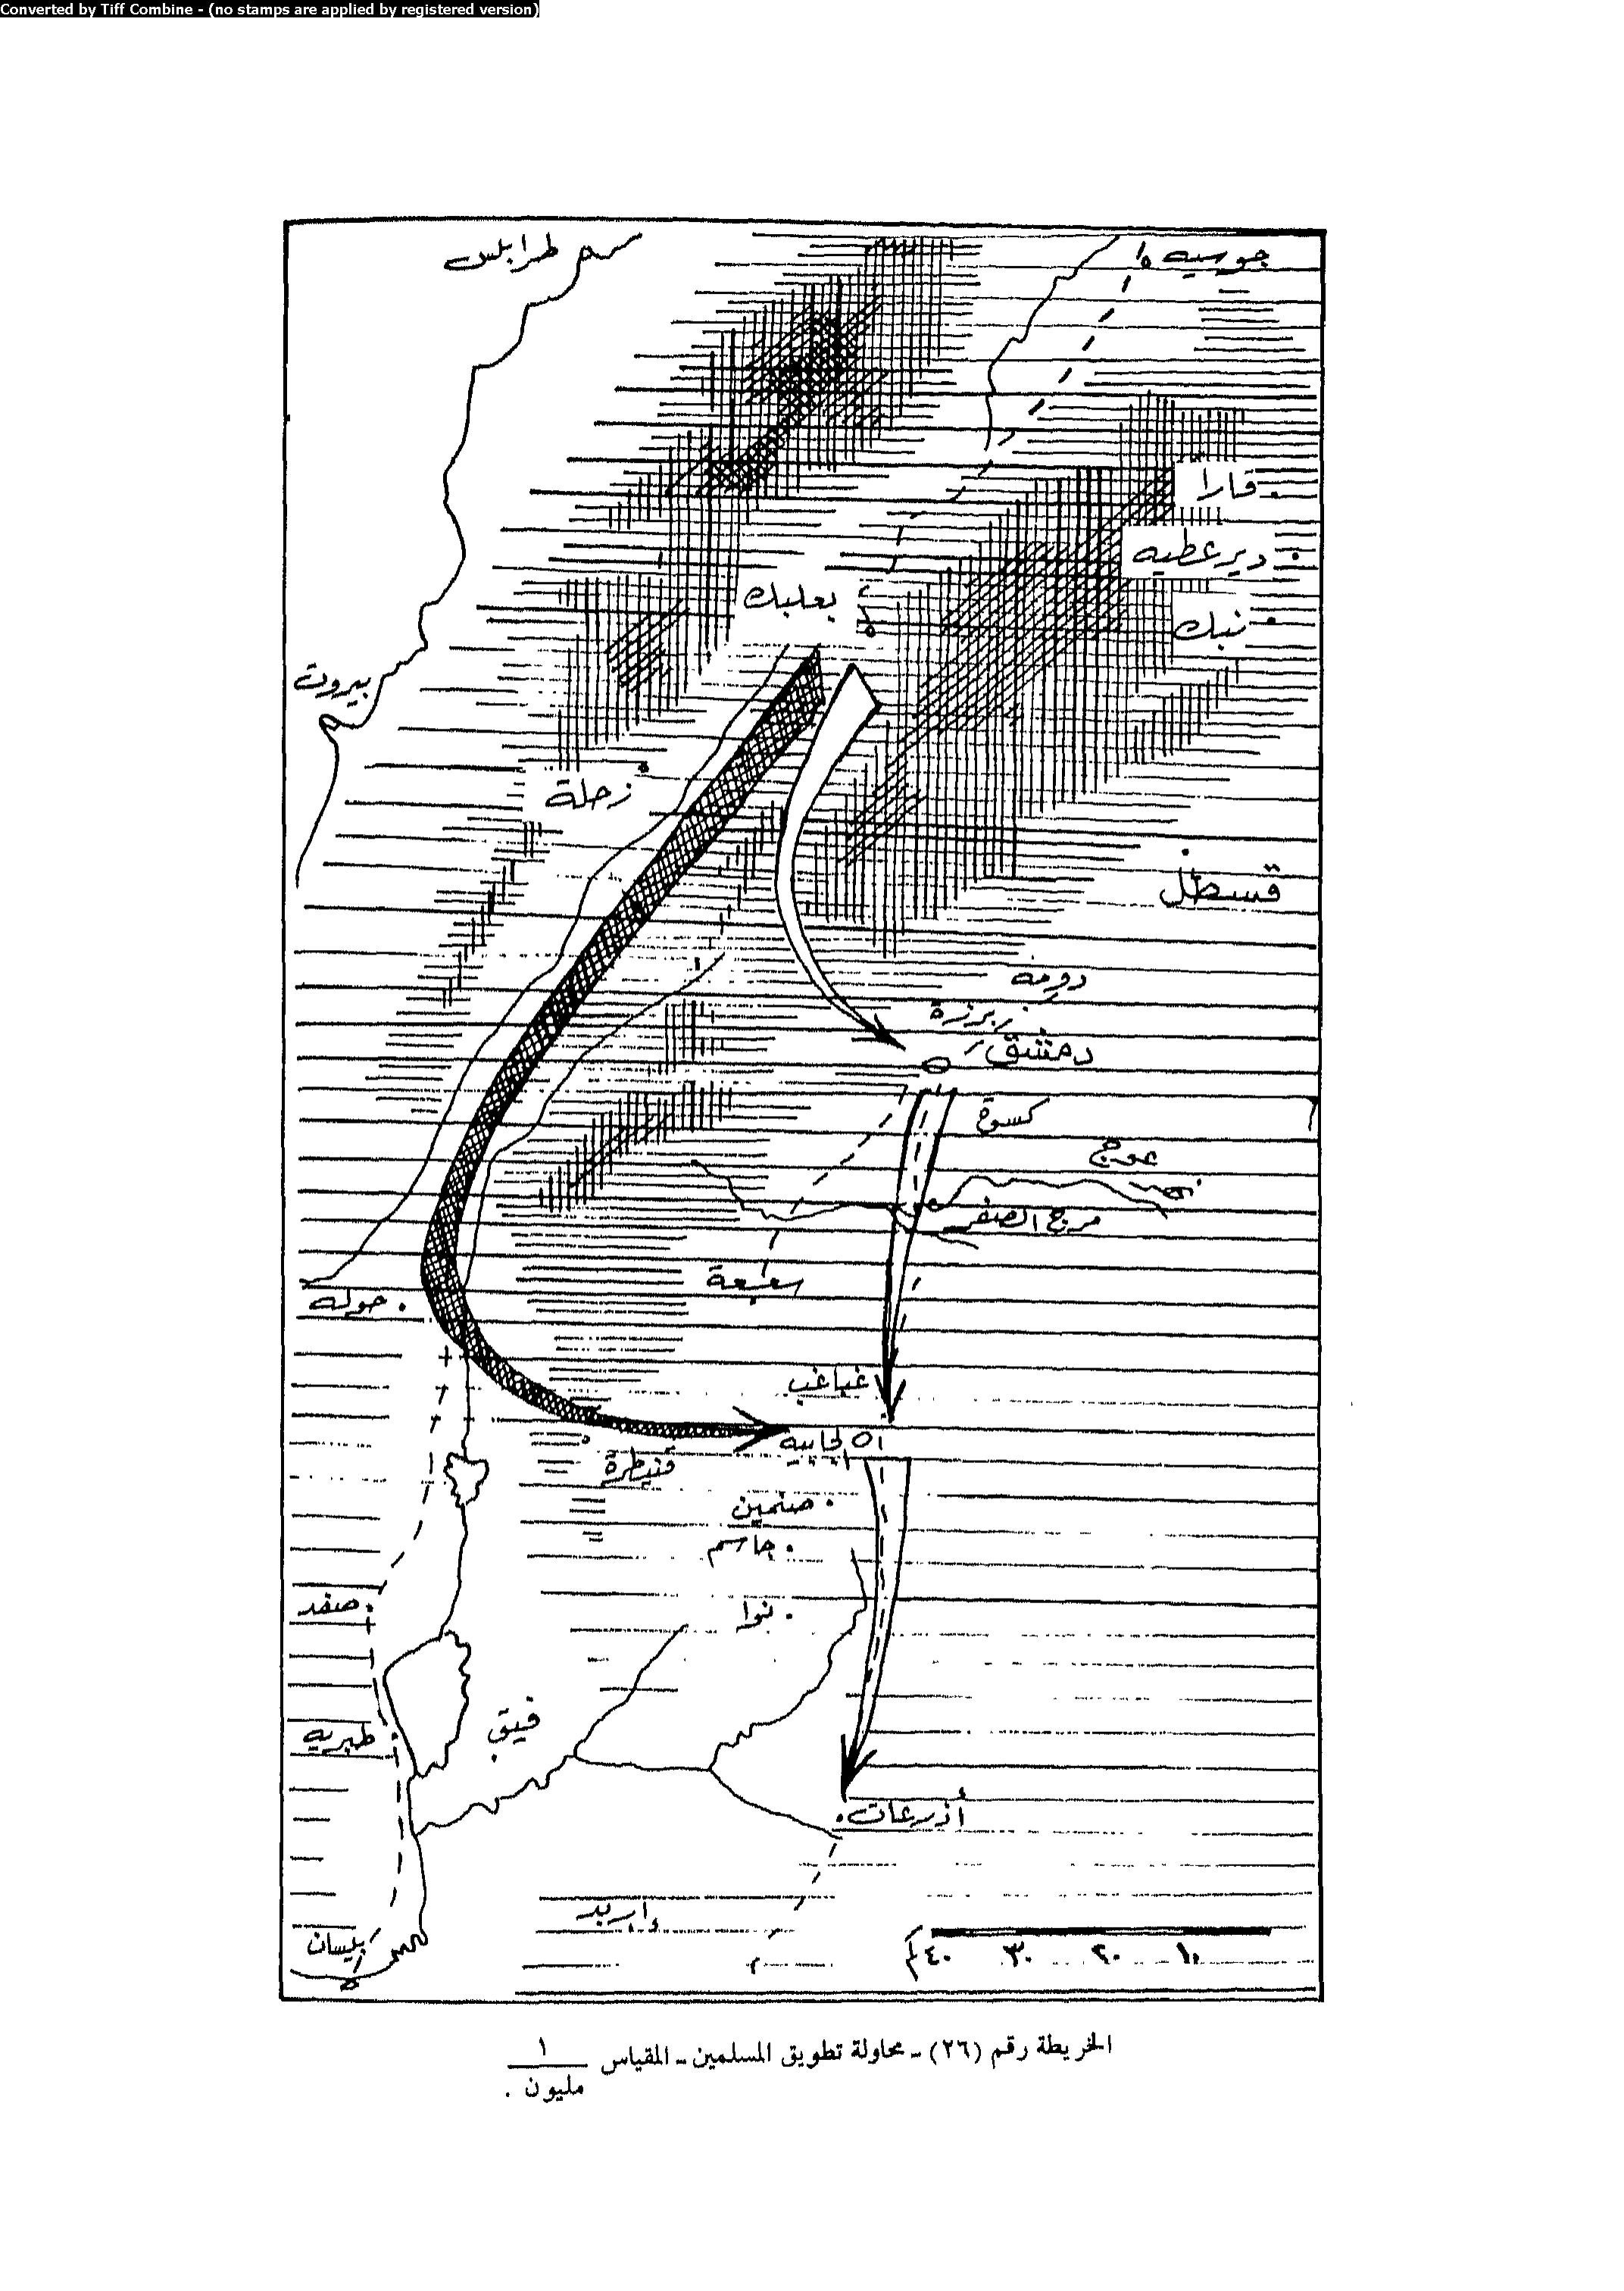 Converted by Tiff Combine - (no stamps are applied by registered version)
طرابلس
جوسيه
قارا
دير عطيه
بعلبك
نبك
بيروت
زحلة
قسطل
دومه
برزة
دمشق
كسوة
عوج
مرج الصفر
سعسعة
حوله
غباغب
الجابيه
قنيطرة
صنمين
جاسم
صفد
نوا
فيق
طبريه
أذرعات
إربد
بيسان
١٠ ٢٠ ٣٠ ٤٠ كم
الخريطة رقم (٢٦) - محاولة تطويق المسلمين - المقياس ١
مليون .